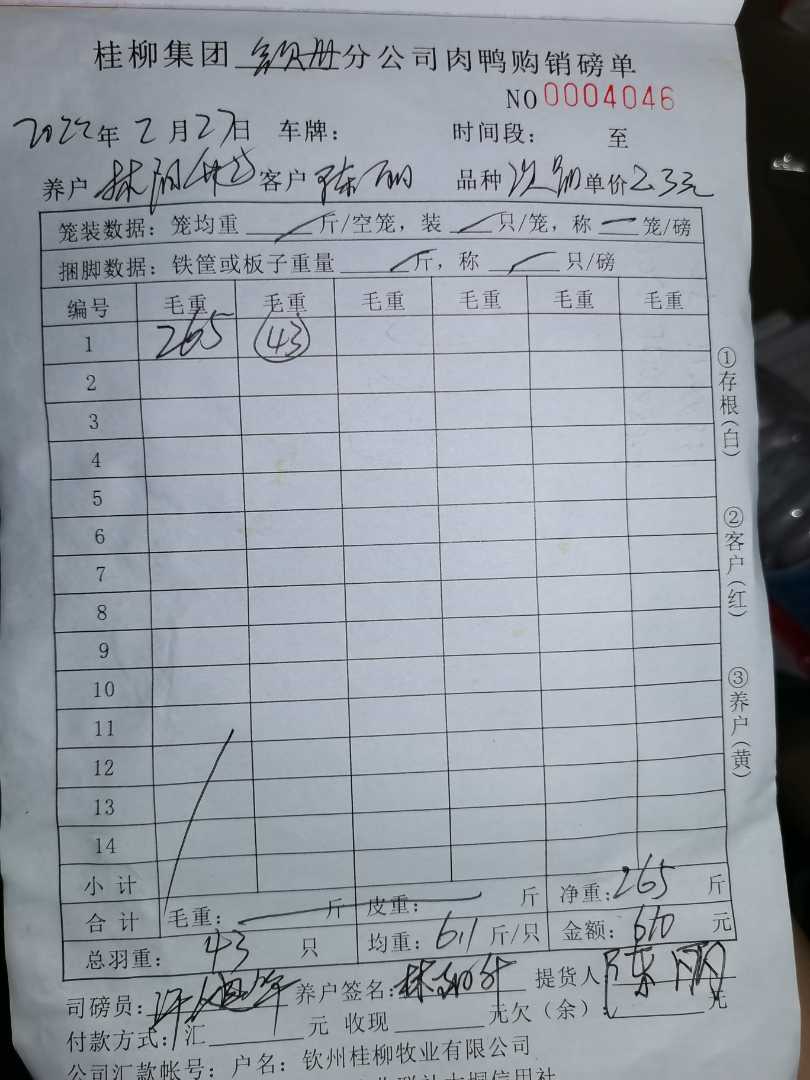 桂柳集团 分公司肉鸭购销磅单
NO 0004046
2022年2月27日 车牌: 时间段: 至
养户 林 客户 陈丽 品种 次品 单价2.3元
笼装数据: 笼均重 斤/空笼, 装 只/笼, 称 笼/磅
捆脚数据: 铁筐或板子重量 斤, 称 只/磅
编号 毛重 毛重 毛重 毛重 毛重 毛重
1 265 43
2
3
4
5
6
7
8
9
10
11
12
13
14
小计
合计 毛重: 斤 皮重: 斤 净重: 265 斤
总羽重: 43 只 均重: 6.1 斤/只 金额: 610 元
司磅员: 养户签名: 林 提货人 陈丽
付款方式: 汇 元 收现 元欠(余): 元
公司汇款帐号: 户名: 钦州桂柳牧业有限公司
①存根(白)
②客户(红)
③养户(黄)